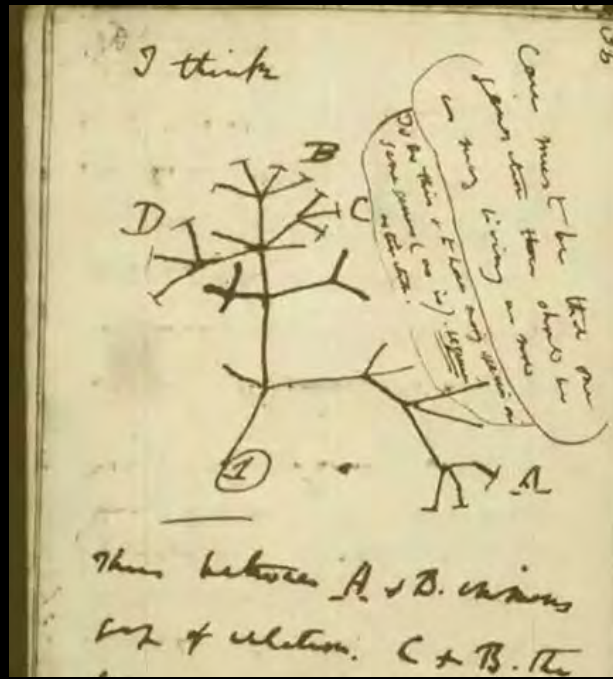 I think
B
C
D
A
1
Case must be that one
generation then should be
as many living as now
To do this & to have many species in
same genus (as is). requires
extinction.
Thus between A & B. immens
gap of relation. C & B. the